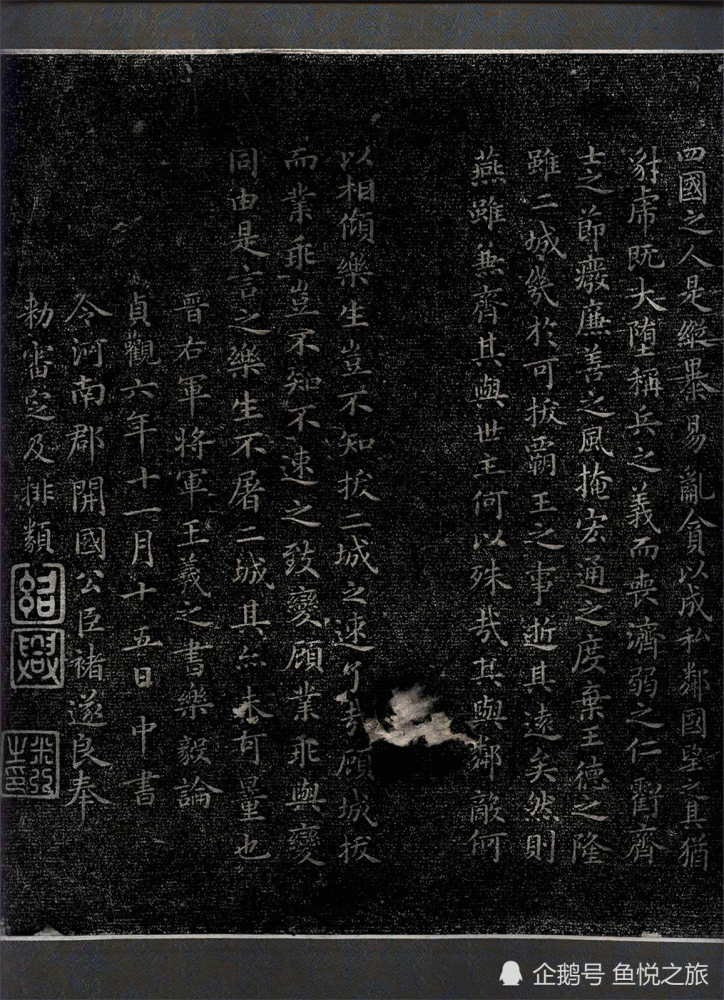 四國之人是縱暴易亂貪以成私鄰國望之其猶
豺虎既大墮稱兵之義而喪濟弱之仁虧齊
士之節廢廉善之風掩宏通之度棄王德之隆
雖二城幾於可拔霸王之事逝其遠矣然則
燕雖兼齊其與世主何以殊哉其與鄰敵何
以相傾樂生豈不知拔二城之速了哉顧城拔
而業乖豈不知不速之致變顧業乖與變
同由是言之樂生不屠二城其亦未可量也
晉右軍將軍王羲之書樂毅論
貞觀六年十一月十五日中書
令河南郡開國公臣褚遂良奉
勑審定及排類
紹興
米芾之印
企鹅号 鱼悦之旅